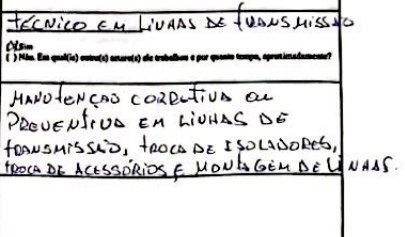 TÉCNICO EM LINHAS DE TRANSMISSÃO
(X) Sim
( ) Não. Em qual(is) outra(s) setor(es) de trabalhou e por quanto tempo, aproximadamente?
MANUTENÇÃO CORRETIVA OU
PREVENTIVA EM LINHAS DE
TRANSMISSÃO, TROCA DE ISOLADORES,
TROCA DE ACESSÓRIOS E MONTAGEM DE LINHAS.